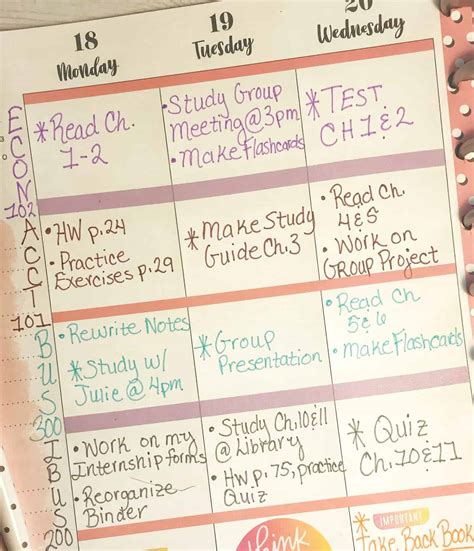 18
Monday
19
Tuesday
20
Wednesday
ECON 102
*Read Ch.
1-2
•Study Group
Meeting@3pm
•Make Flashcards
*TEST
CH 1 & 2
ACCT 101
•HW p.24
•Practice
Exercises p.29
*Make Study
Guide Ch.3
•Read Ch.
4&5
•Work on
Group Project
BUS 300
•Rewrite Notes
*Study w/
Julie @ 4pm
*Group
Presentation
•Read Ch
5&6
•Make Flashcards
IBUS 200
•Work on my
Internship forms
•Reorganize
Binder
•Study Ch.10&11
@Library
•HW p.75, practice
Quiz
*Quiz
Ch.10&11
think
IMPORTANT
*Take Back Book